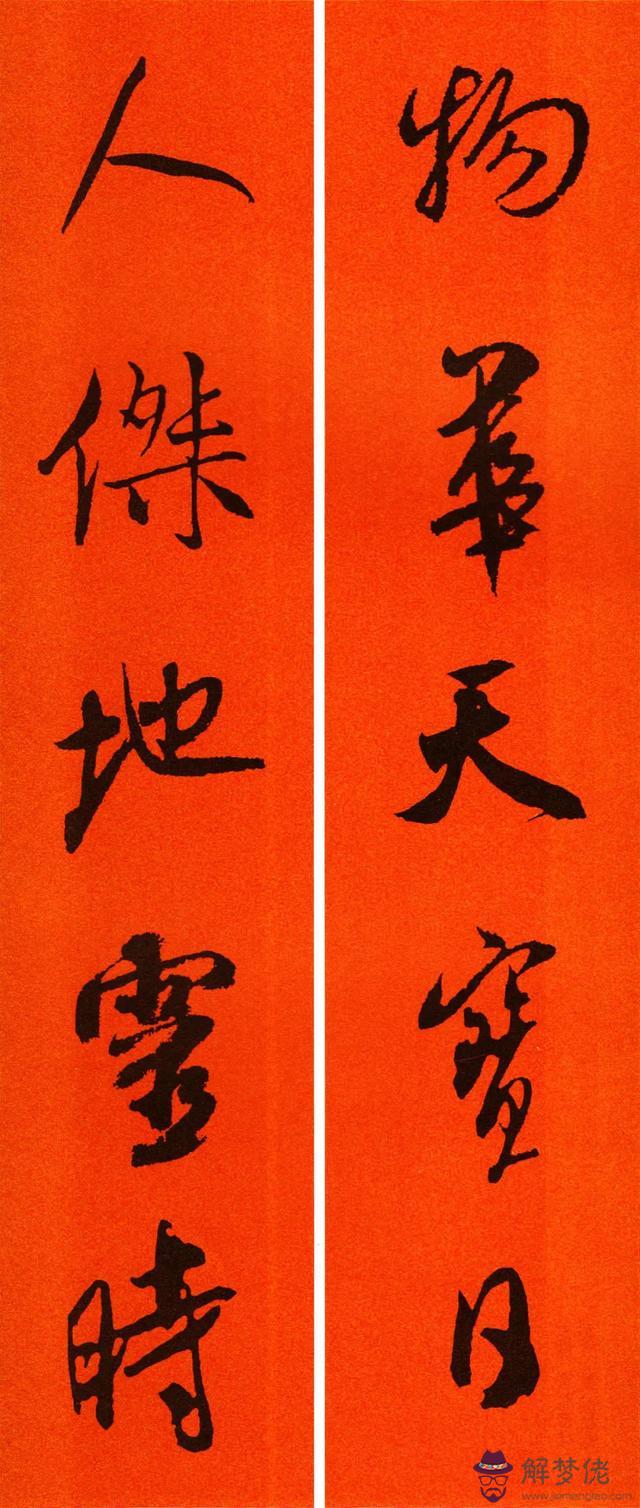 物華天寶日
人傑地靈時
解梦佬
www.jiemenglao.com